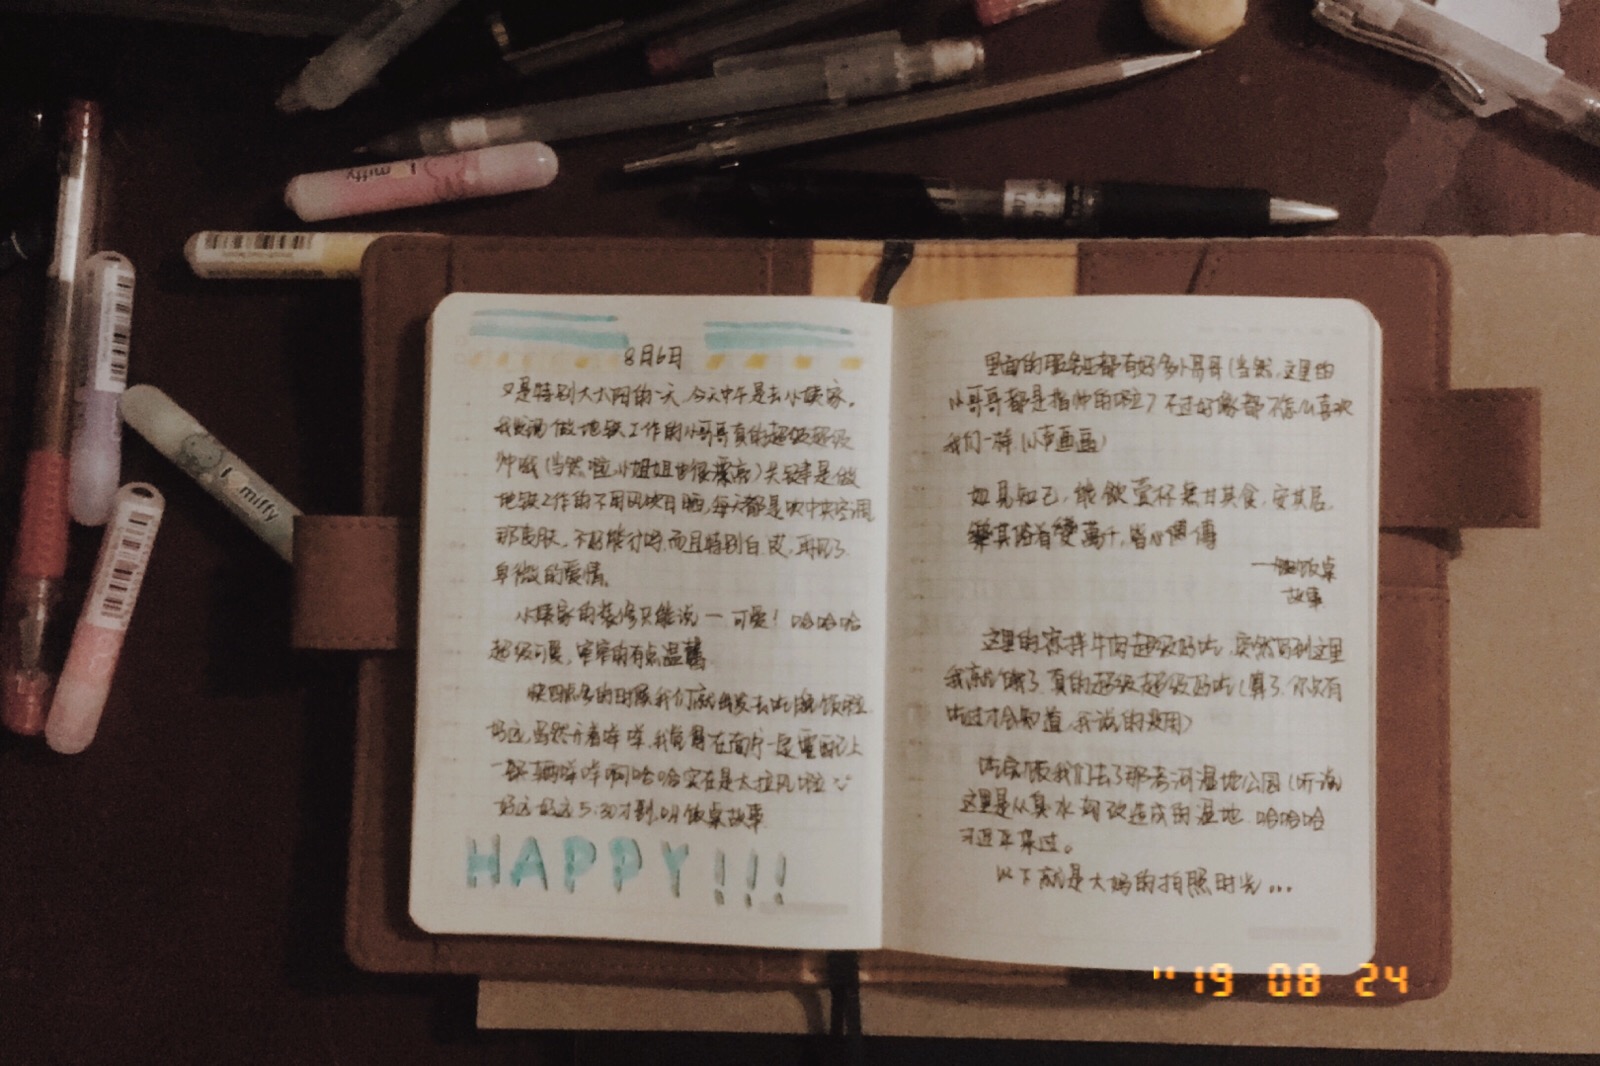 miffy
miffy
8月6日
又是特别大太阳的一天,今天中午是去小姨家。
我要说做地铁工作的小哥哥真的超级超级
帅哦(当然啦,小姐姐也很漂亮)关键是做
地铁工作的不用风吹日晒,每天都是吹中央空调
那皮肤,不好才怪,而且特别白皮,再见了
卑微的爱情。
小姨家的装修只能说一可爱!哈哈哈
超级可爱,窄窄的有点温馨
快四点多的时候我们就出发去吃晚饭啦
好远,虽然开着
一辆 啊哈哈实在是太拉风啦
好远好远5:30才到,叫饭桌故事
HAPPY!!!
里面的服务生都有好多小哥哥(当然,这里的
小哥哥都是指帅的啦)不过好像都不怎么喜欢
我们一样(小声逼逼)
如见知己,能饮壹杯無甘其食,安其居,
樂其俗者變萬千,皆心傳傳
一饭桌
故事
这里的凉拌牛肉超级好吃,突然写到这里
我就饿了,真的超级超级好吃(算了,你只有
吃过才会知道,我说的没用)
吃完饭我们去了那考河湿地公园(听说
这里是从臭水沟改造成的湿地,哈哈哈
习近平来过。
以下就是大妈的拍照时光...
'19 08 24